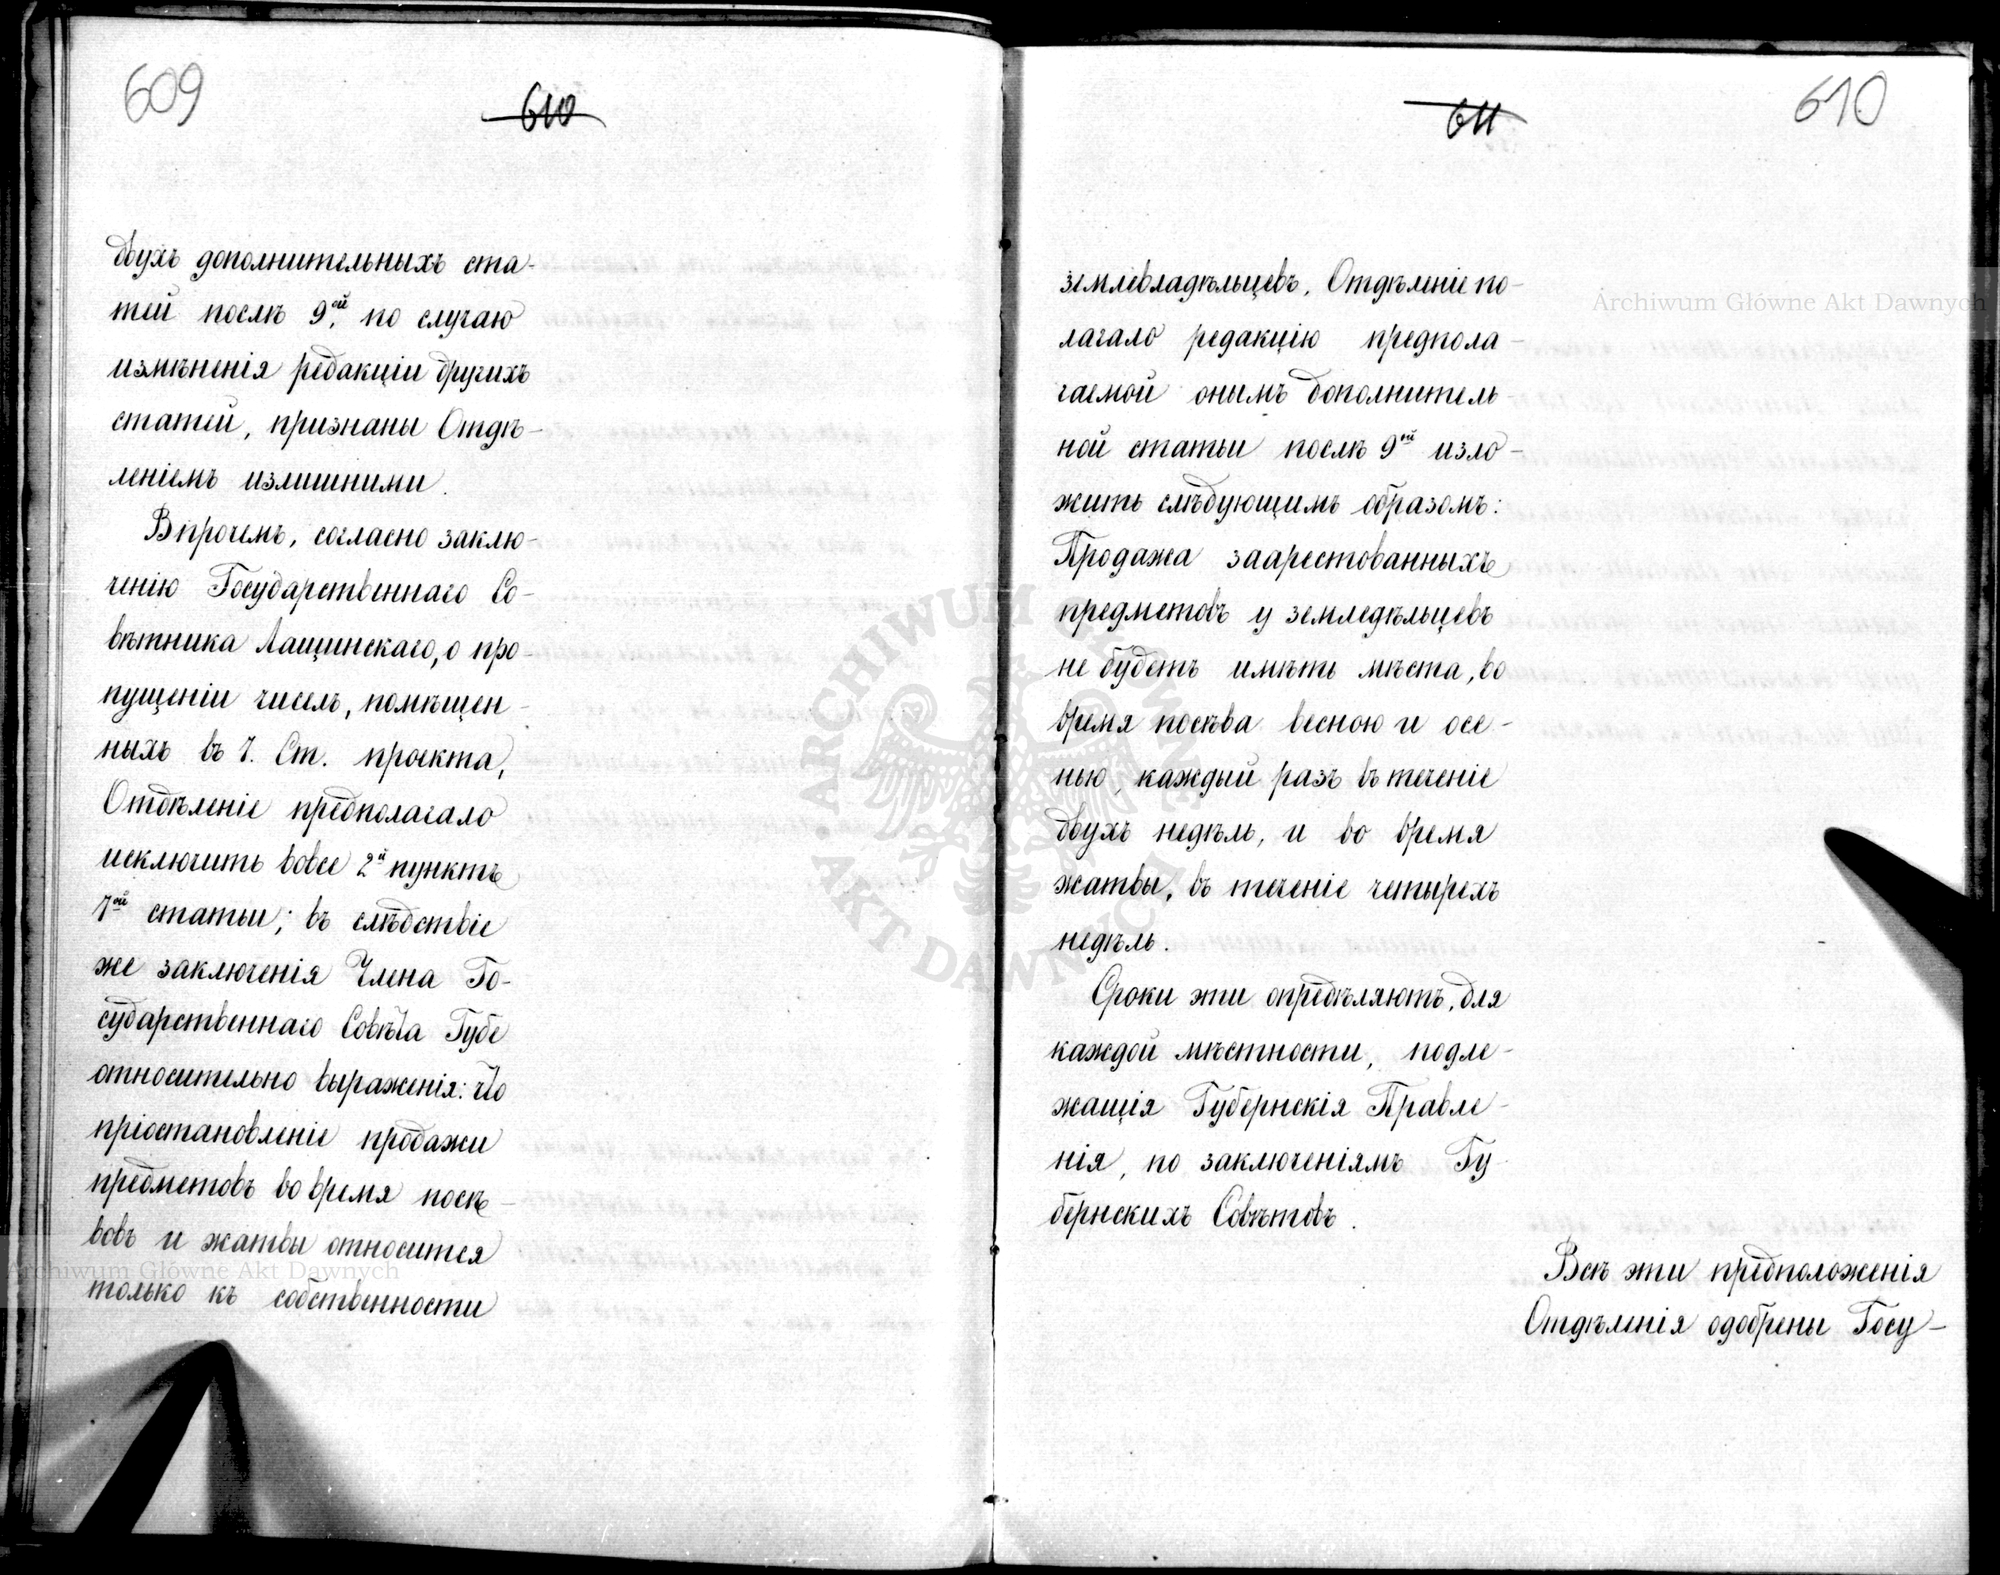 609
610
двухъ дополнительныхъ ста-
тей послѣ 9.ой по случаю
измѣненія редакціи другихъ
статей, признаны Отдѣ-
леніемъ излишними.
Впрочемъ, согласно заклю-
ченію Государственнаго Со-
вѣтника Лащинскаго, о про-
пущеніи чиселъ, помѣщен-
ныхъ въ 7. Ст. проекта,
Отдѣленіе предполагало
исключить вовсе 2й пунктъ
7ой статьи; въ слѣдствіе
же заключенія Члена Го-
сударственнаго Совѣта Губе
относительно выраженія: что
пріостановленіе продажи
предметовъ во время посѣ-
вовъ и жатвы относится
только къ собственности
611
610
землевладѣльцевъ, Отдѣленіе по-
лагало редакцію предпола-
гаемой онымъ дополнитель-
ной статьи послѣ 9ой изло-
жить слѣдующимъ образомъ:
Продажа заарестованныхъ
предметовъ у земледѣльцевъ
не будетъ имѣть мѣста, во
время посѣва весною и осе-
нью, каждый разъ въ теченіе
двухъ недѣль, и во время
жатвы, въ теченіе четырехъ
недѣль.
Сроки эти опредѣляютъ, для
каждой мѣстности, подле-
жащія Губернскія Правле-
нія, по заключеніямъ Гу
бернскихъ Совѣтовъ.
Всѣ эти предположенія
Отдѣленія одобрены Госу-
Archiwum Główne Akt Dawnych
Archiwum Główne Akt Dawnych
ARCHIWUM GŁÓWNE
AKT DAWNYCH